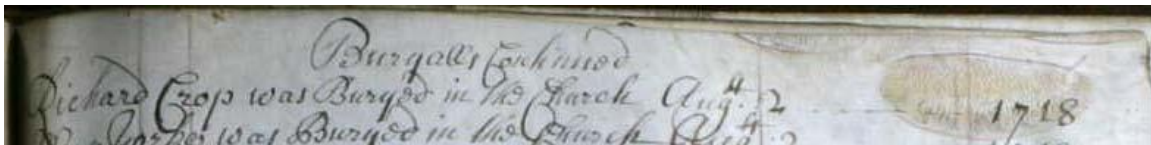 Buryalls Continued
Richard Crop was Buryed in the Church Augst. 2 1718
was Buryed in the Church Augst. 2